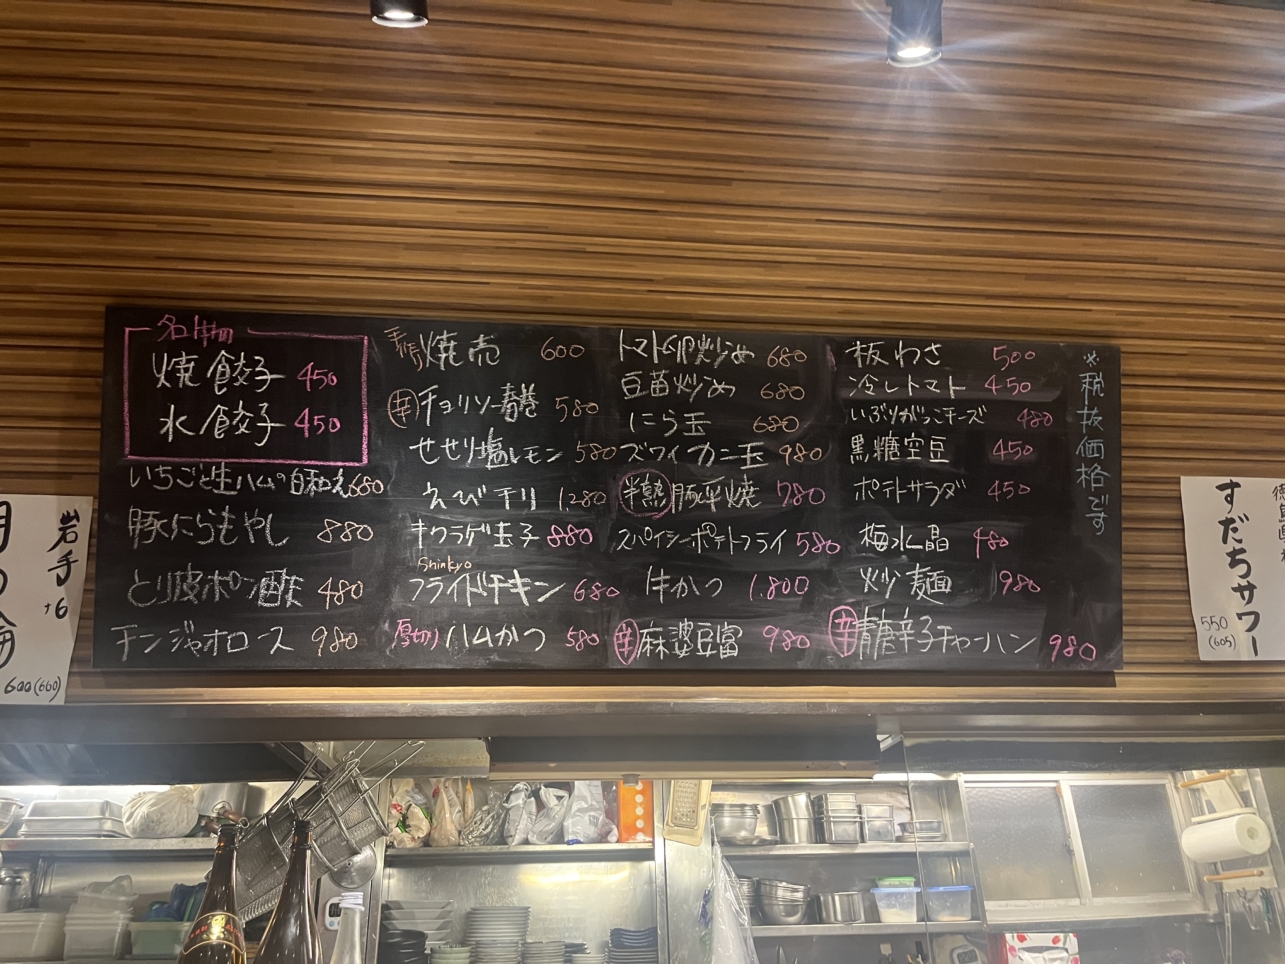 名物
焼餃子 450
水餃子 450
いちごと生ハムの白和え 680
豚にらもやし 880
とり皮ポン酢 480
チンジャオロース 980
焼売 600
辛 チョリソー春巻 580
せせり塩レモン 580
えびチリ 1280
キクラゲ玉子 880
Shinkyo
フライドチキン 680
厚切りハムかつ 580
トマト卵炒め 680
豆苗炒め 680
にら玉 680
ズワイカニ玉 980
半熟 豚平焼 780
スパイシーポテトフライ 580
牛かつ 1,800
辛 麻婆豆富 980
板わさ 500
冷しトマト 450
いぶりがっこチーズ 480
黒糖空豆 450
ポテトサラダ 450
梅水晶 480
炒麺 980
辛 青唐辛子チャーハン 980
※税抜価格です
岩手
+6
600(660)
すだちサワー
550
(605)